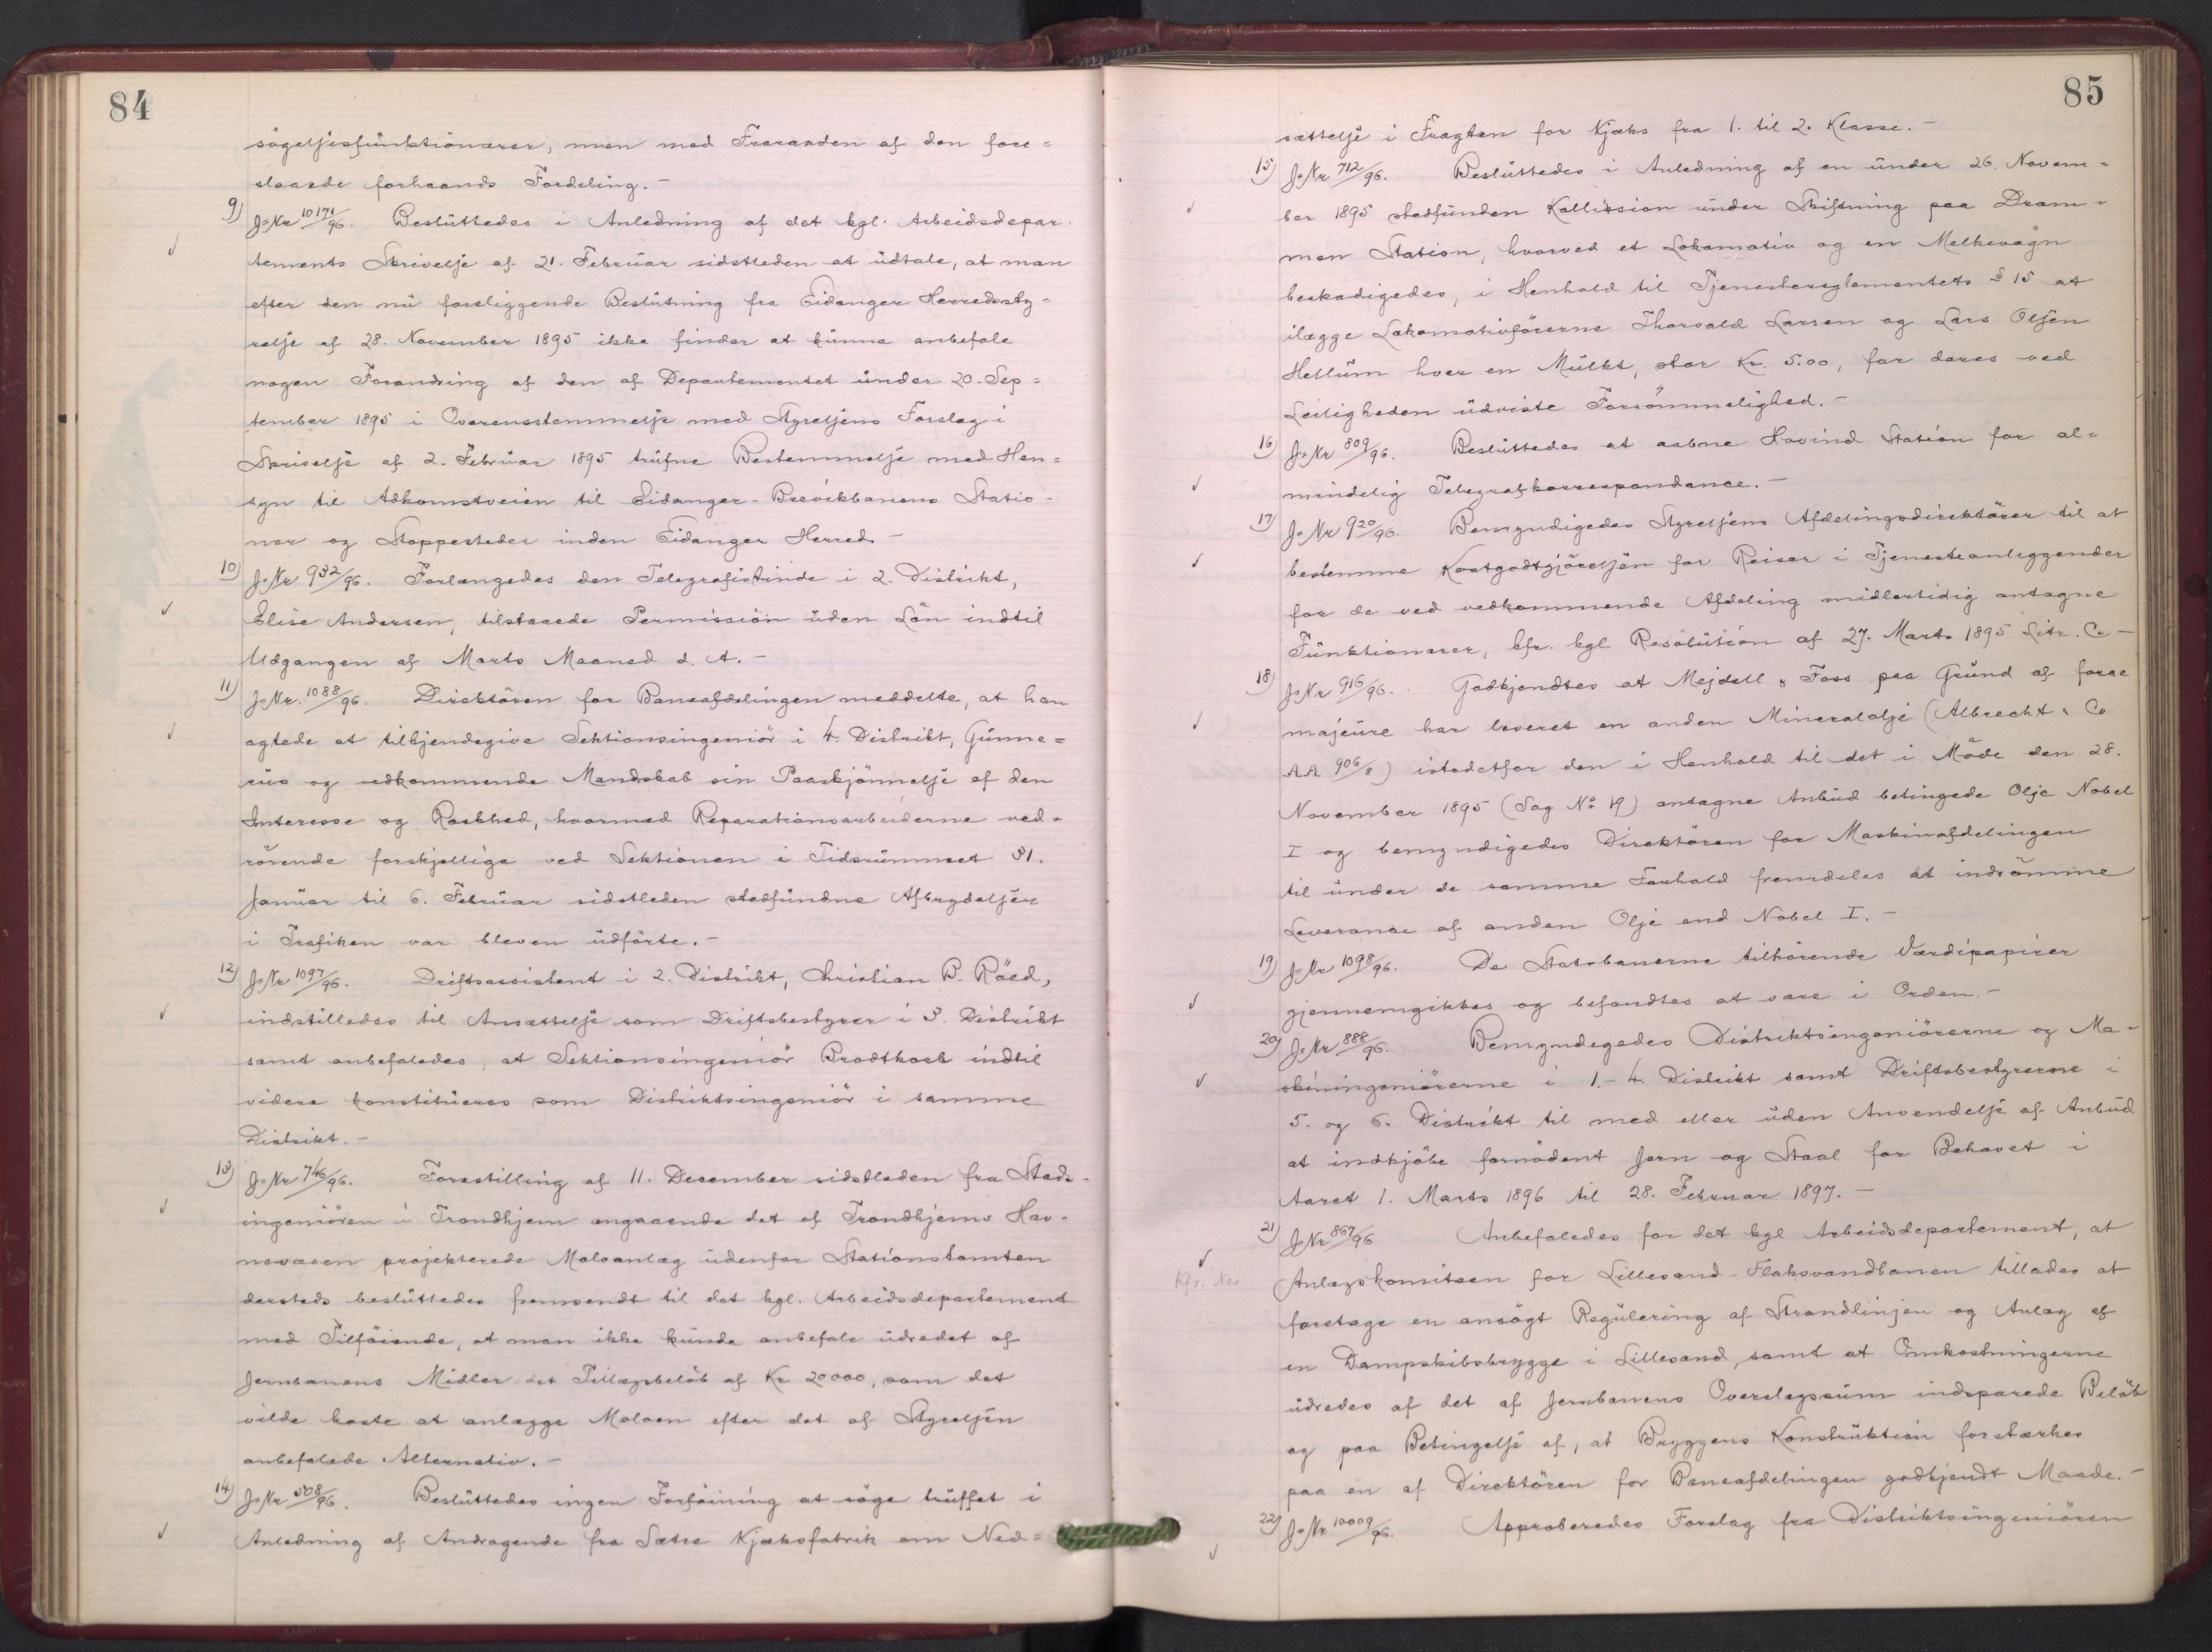 84
søgelsesfunktionærer, men med Fraranden af den fore=
slaaede forhaands Fordeling.-
9) J.Nr 10171/96. Besluttedes i Anledning af det kgl. Arbeidsdepar-
tements Skrivelse af 21. Februar sidstleden at udtale, at man
efter den nu foreliggende Beslutning fra Eidanger Herredssty=
relse af 28. November 1895 ikke finder at kunne anbefale
nogen Forandring af den af Departementet under 20. Sep=
tember 1895 i Overensstemmelse med Styrelsens Forslag i
Skrivelse af 2. Februar 1895 trufne Bestemmelse med Hen=
syn til Adkomstveien til Eidanger-Brevikbanens Statio-
ner og Stoppesteder inden Eidanger Herred -
10) J.Nr 932/96. Forlængedes den Telegrafistinde i 2. Distrikt,
Elise Andersen, tilstaaede Permission uden Løn indtil
Udgangen af Marts Maaned d. A.-
11) J.Nr. 1088/96. Direktøren for Baneafdelingen meddelte, at han
agtede at tilkjendegive Sektionsingeniør i 4. Distrikt, Gunne=
rus og vedkommende Mandskab sin Paaskjønnelse af den
Interesse og Raskhed, hvormed Reparationsarbeiderne ved=
rørende forskjellige ved Sektionen i Tidsrummet 31.
Januar til 6. Februar sidstleden stedfundne Afbrydelser
i Trafiken var bleven udførte.-
12) J.Nr 1097/96. Driftsassistent i 2. Distrikt, Christian B. Røed,
indstilledes til Ansættelse som Driftsbestyrer i 3. Distrikt
samt anbefaledes, at Sektionsingeniør Brodtkorb indtil
videre konstitueres som Distriktsingeniør i samme
Distrikt.-
13) J.Nr 746/96. Forestilling af 11. December sidstleden fra Stads-
ingeniøren i Trondhjem angaaende det af Trondhjems Hav-
nevæsen projekterede Moloanlæg udenfor Stationstomten
dersteds besluttedes fremsendt til det kgl. Arbeidsdepartement
med Tilføiende, at man ikke kunde anbefale udredet af
Jernbanens Midler det Tillægsbeløb af Kr 20000, som det
vilde koste at anlægge Moloen efter det af Styrelsen
anbefalede Alternativ.-
14) J.Nr 508/96. Besluttedes ingen Forføining at søge truffet i
Anledning af Andragende fra Sætre Kjæksfabrik om Ned=
85
sættelse i Fragten for Kjæks fra 1. til 2. Klasse.-
15) J.Nr 712/96. Besluttedes i Anledning af en under 26. Novem=
ber 1895 stedfunden Kollission under Skiftning paa Dram=
men Station, hvorved et Lokomotiv og en Melkevogn
beskadigedes, i Henhold til Tjenestereglementets § 15 at
ilægge Lokomotivførerne Thorvald Larsen og Lars Olsen
Hellum hver en Mulkt, stor Kr. 5.00, for deres ved
Leiligheden udviste Forsømmelighed.-
16) J.Nr 809/96. Besluttedes at aabne Hovind Station for al=
mindelig Telegrafkorrespondance.-
17) J.Nr 920/96. Bemyndigedes Styrelsens Afdelingsdirektører til at
bestemme Kostgodtgjørelsen for Reiser i Tjenesteanliggender
for de ved vedkommende Afdeling midlertidig antagne
Funktionærer, kfr. kgl. Resolution af 27. Marts 1895 Litr. C.-
18) J.Nr 916/96. Godkjendtes at Mejdell & Foss paa Grund af force
majeure har leveret en anden Mineralolje (Albrecht & Co
AA 906/8) istedetfor den i Henhold til det i Møde den 28.
November 1895 (Sag No 19) antagne Anbud betingede Olje Nobel
I og bemyndigedes Direktøren for Maskinafdelingen
til under de samme Forhold fremdeles at indrømme
Leverance af anden Olje end Nobel I.-
19) J.Nr 1098/96. De Statsbanerne tilhørende Værdipapirer
gjennemgikkes og befandtes at være i Orden.-
20) J.Nr 888/96. Bemyndegedes Distriktsingeniørerne og Ma-
skiningeniørerne i 1.-4. Distrikt samt Driftsbestyrerne i
5. og 6. Distrikt til med eller uden Anvendelse af Anbud
at indkjøbe fornødent Jern og Staal for Behovet i
Aaret 1. Marts 1896 til 28. Februar 1897.-
21) J.Nr 867/96 Anbefaledes for det kgl Arbeidsdepartement, at
Kfr. Anlægskomiteen for Lillesand-Flaksvandbanen tillades at
foretage en ansøgt Regulering af Strandlinjen og Anlæg af
en Dampskibsbrygge i Lillesand, samt at Omkostningerne
udredes af det af Jernbanens Overslagssum indsparede Beløb
og paa Betingelse af, at Bryggens Konstruktion forstærkes
paa en af Direktøren for Baneafdelingen godkjendt Maade.-
22) J.Nr 10009/96. Approberedes Forslag fra Distriktsingeniøren